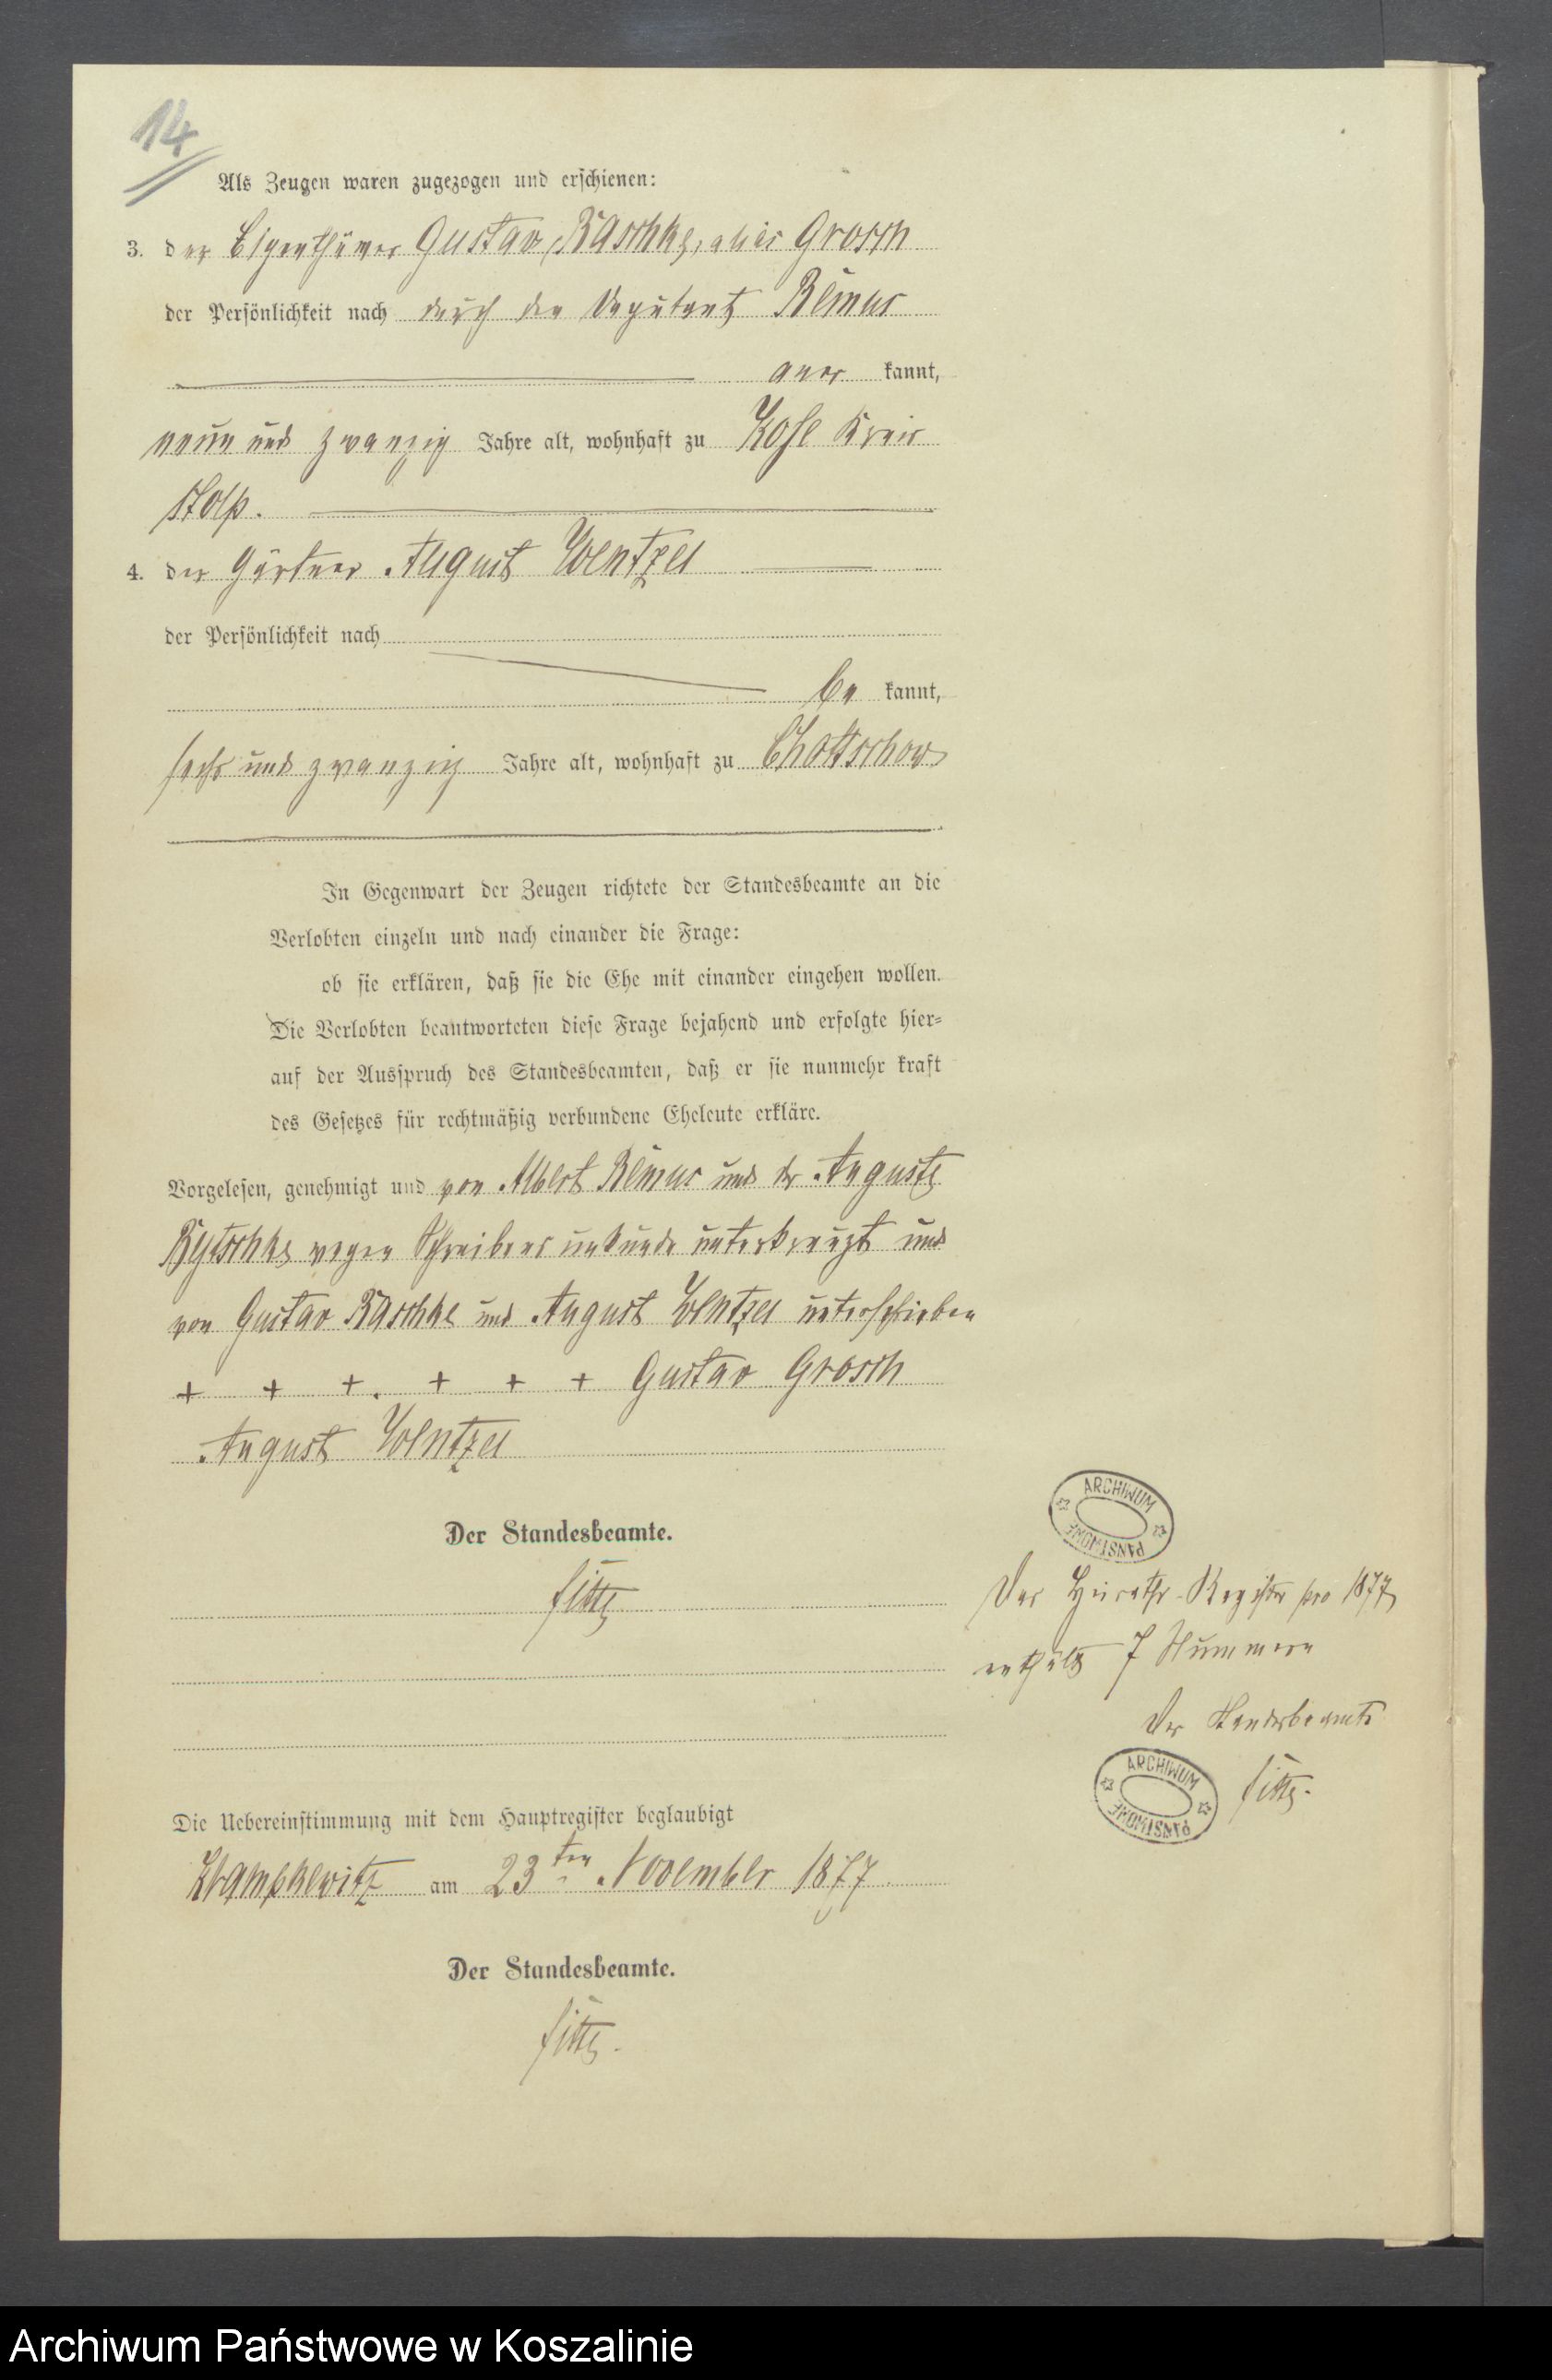 14
Als Zeugen waren zugezogen und erschienen:
3. der Eigenthümer Gustav Raschke, alias Grosch
der Persönlichkeit nach durch den Deputant Remus
aner kannt,
neun und zwanzig Jahre alt, wohnhaft zu Kose Kreis
Stolp.
4. der Gärtner August Wentzel
der Persönlichkeit nach
be kannt,
sechs und zwanzig Jahre alt, wohnhaft zu Chottschow
In Gegenwart der Zeugen richtete der Standesbeamte an die
Verlobten einzeln und nach einander die Frage:
ob sie erklären, daß sie die Ehe mit einander eingehen wollen.
Die Verlobten beantworteten diese Frage bejahend und erfolgte hier=
auf der Ausspruch des Standesbeamten, daß er sie nunmehr kraft
des Gesetzes für rechtmäßig verbundene Eheleute erkläre.
Vorgelesen, genehmigt und von Albert Remus und der Auguste
wegen Schreibens unkunde unterkreuzt und
von Gustav Raschke und August Wentzel unterschrieben
+ + +. + + + Gustav Grosch
August Wentzel
Der Standesbeamte.
ARCHIWUM PAŃSTWOWE
Das Heiraths-Register pro 1877
enthält 7 Nummern
Der Standesbeamte
ARCHIWUM PAŃSTWOWE
Die Uebereinstimmung mit dem Hauptregister beglaubigt
Krampkewitz am 23ten November 1877
Der Standesbeamte.
Archiwum Państwowe w Koszalinie